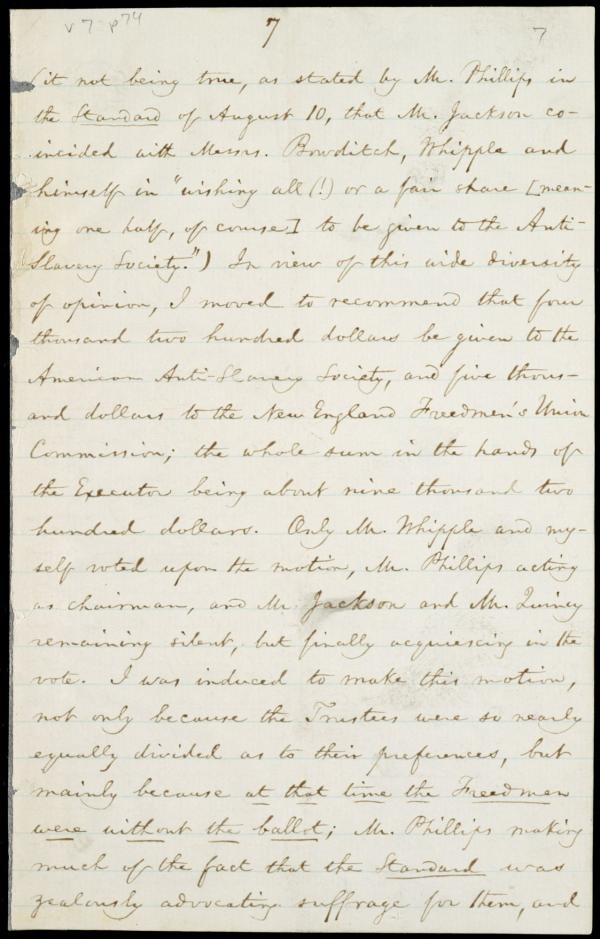 v 7 p74
7
7
(it not being true, as stated by Mr. Phillips in
the Standard of August 10, that Mr. Jackson co-
incided with Messrs. Bowditch, Whipple and
himself in "wishing all (!) or a fair share [mean-
ing one half, of course] to be given to the Anti-
Slavery Society.") In view of this wide diversity
of opinion, I moved to recommend that four
thousand two hundred dollars be given to the
American Anti-Slavery Society, and five thous-
and dollars to the New England Freedmen's Union
Commission; the whole sum in the hands of
the Executor being about nine thousand two
hundred dollars. Only Mr. Whipple and my-
self voted upon the motion, Mr. Phillips acting
as chairman, and Mr. Jackson and Mr. Quincy
remaining silent, but finally acquiescing in the
vote. I was induced to make this motion,
not only because the Trustees were so nearly
equally divided as to their preferences, but
mainly because at that time the Freedmen
were without the ballot; Mr. Phillips making
much of the fact that the Standard was
zealously advocating suffrage for them, and